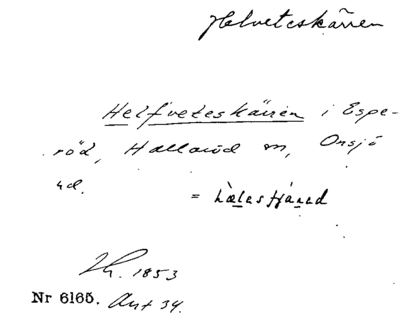 Helveteskärren
Helfveteskärren i Espe-
röd, Hallaröd sn, Onsjö
hd.
=
Th. 1853
Nr 6165. Ant 34.